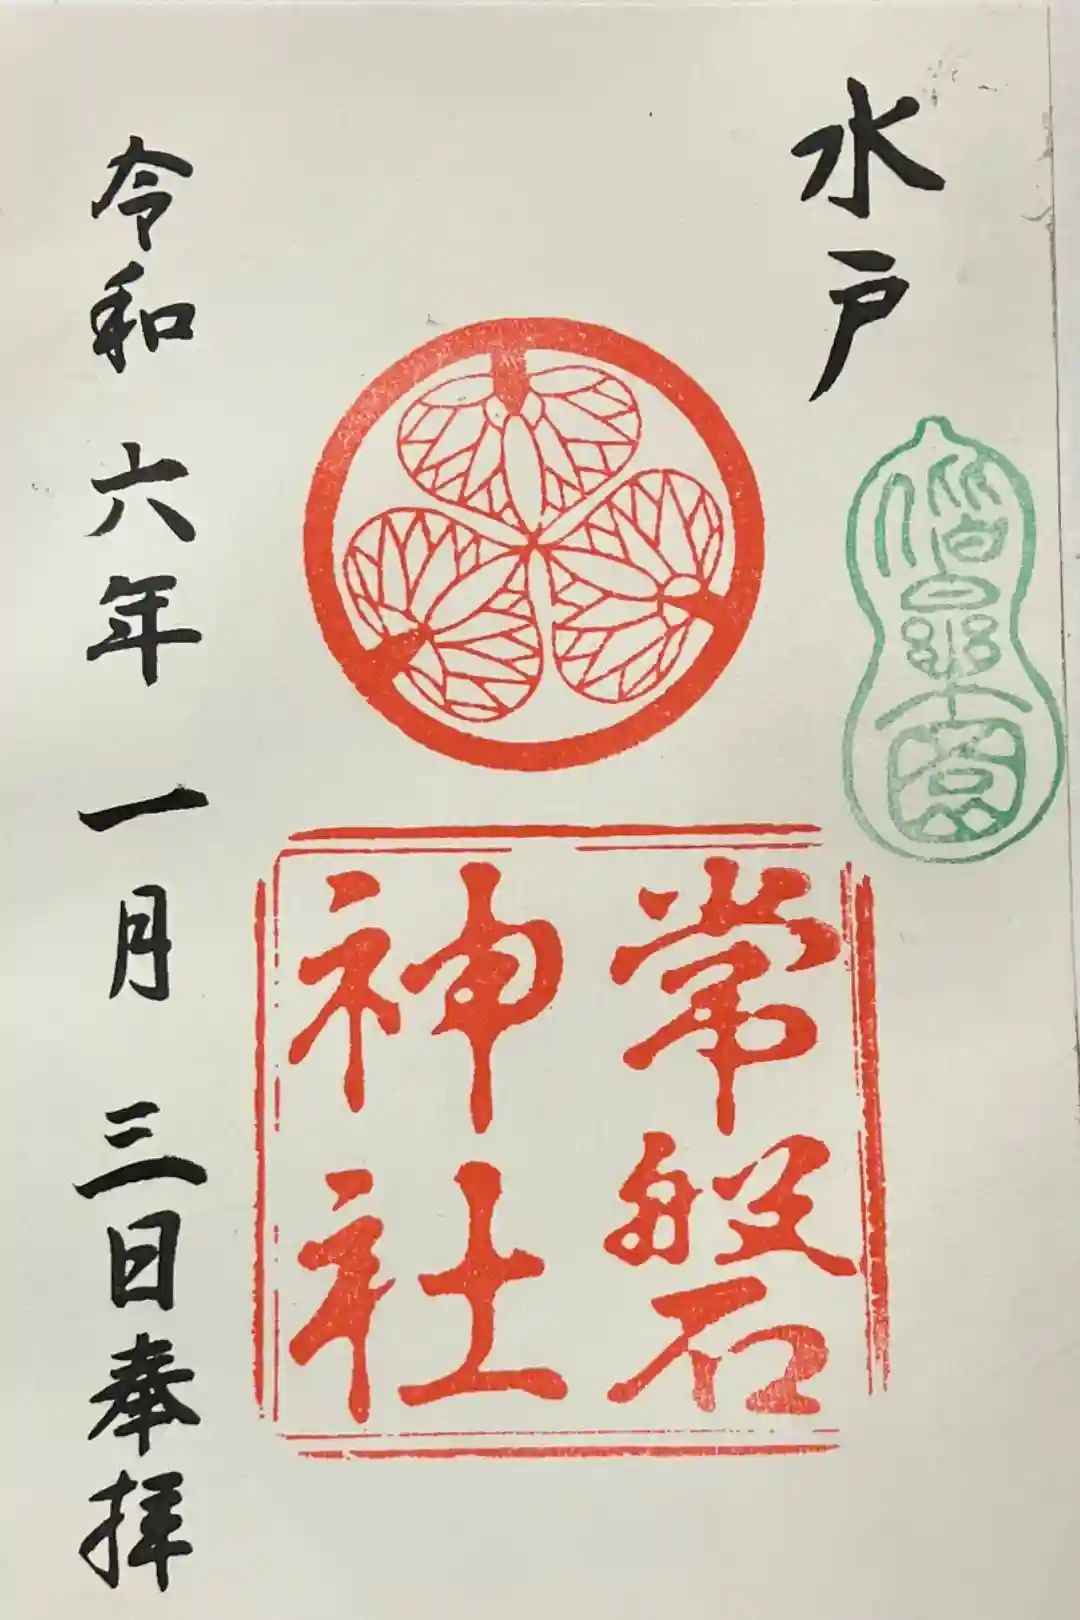 水戸
偕楽園
常磐
神社
令和六年一月三日奉拝